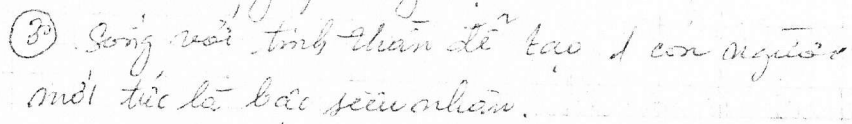 ③ Sống với tinh thần để tạo 1 con người
mới tức là bác siêu nhân.